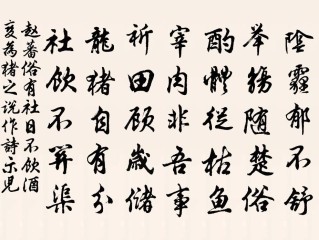 陰霾郁不舒
举觴随楚俗
酌醴從枯魚
宰肉非吾事
祈田顾歲儲
龍猪自有分
社飲不关渠
赵蕃俗有社日不飲酒
亥為猪之说作詩示兒